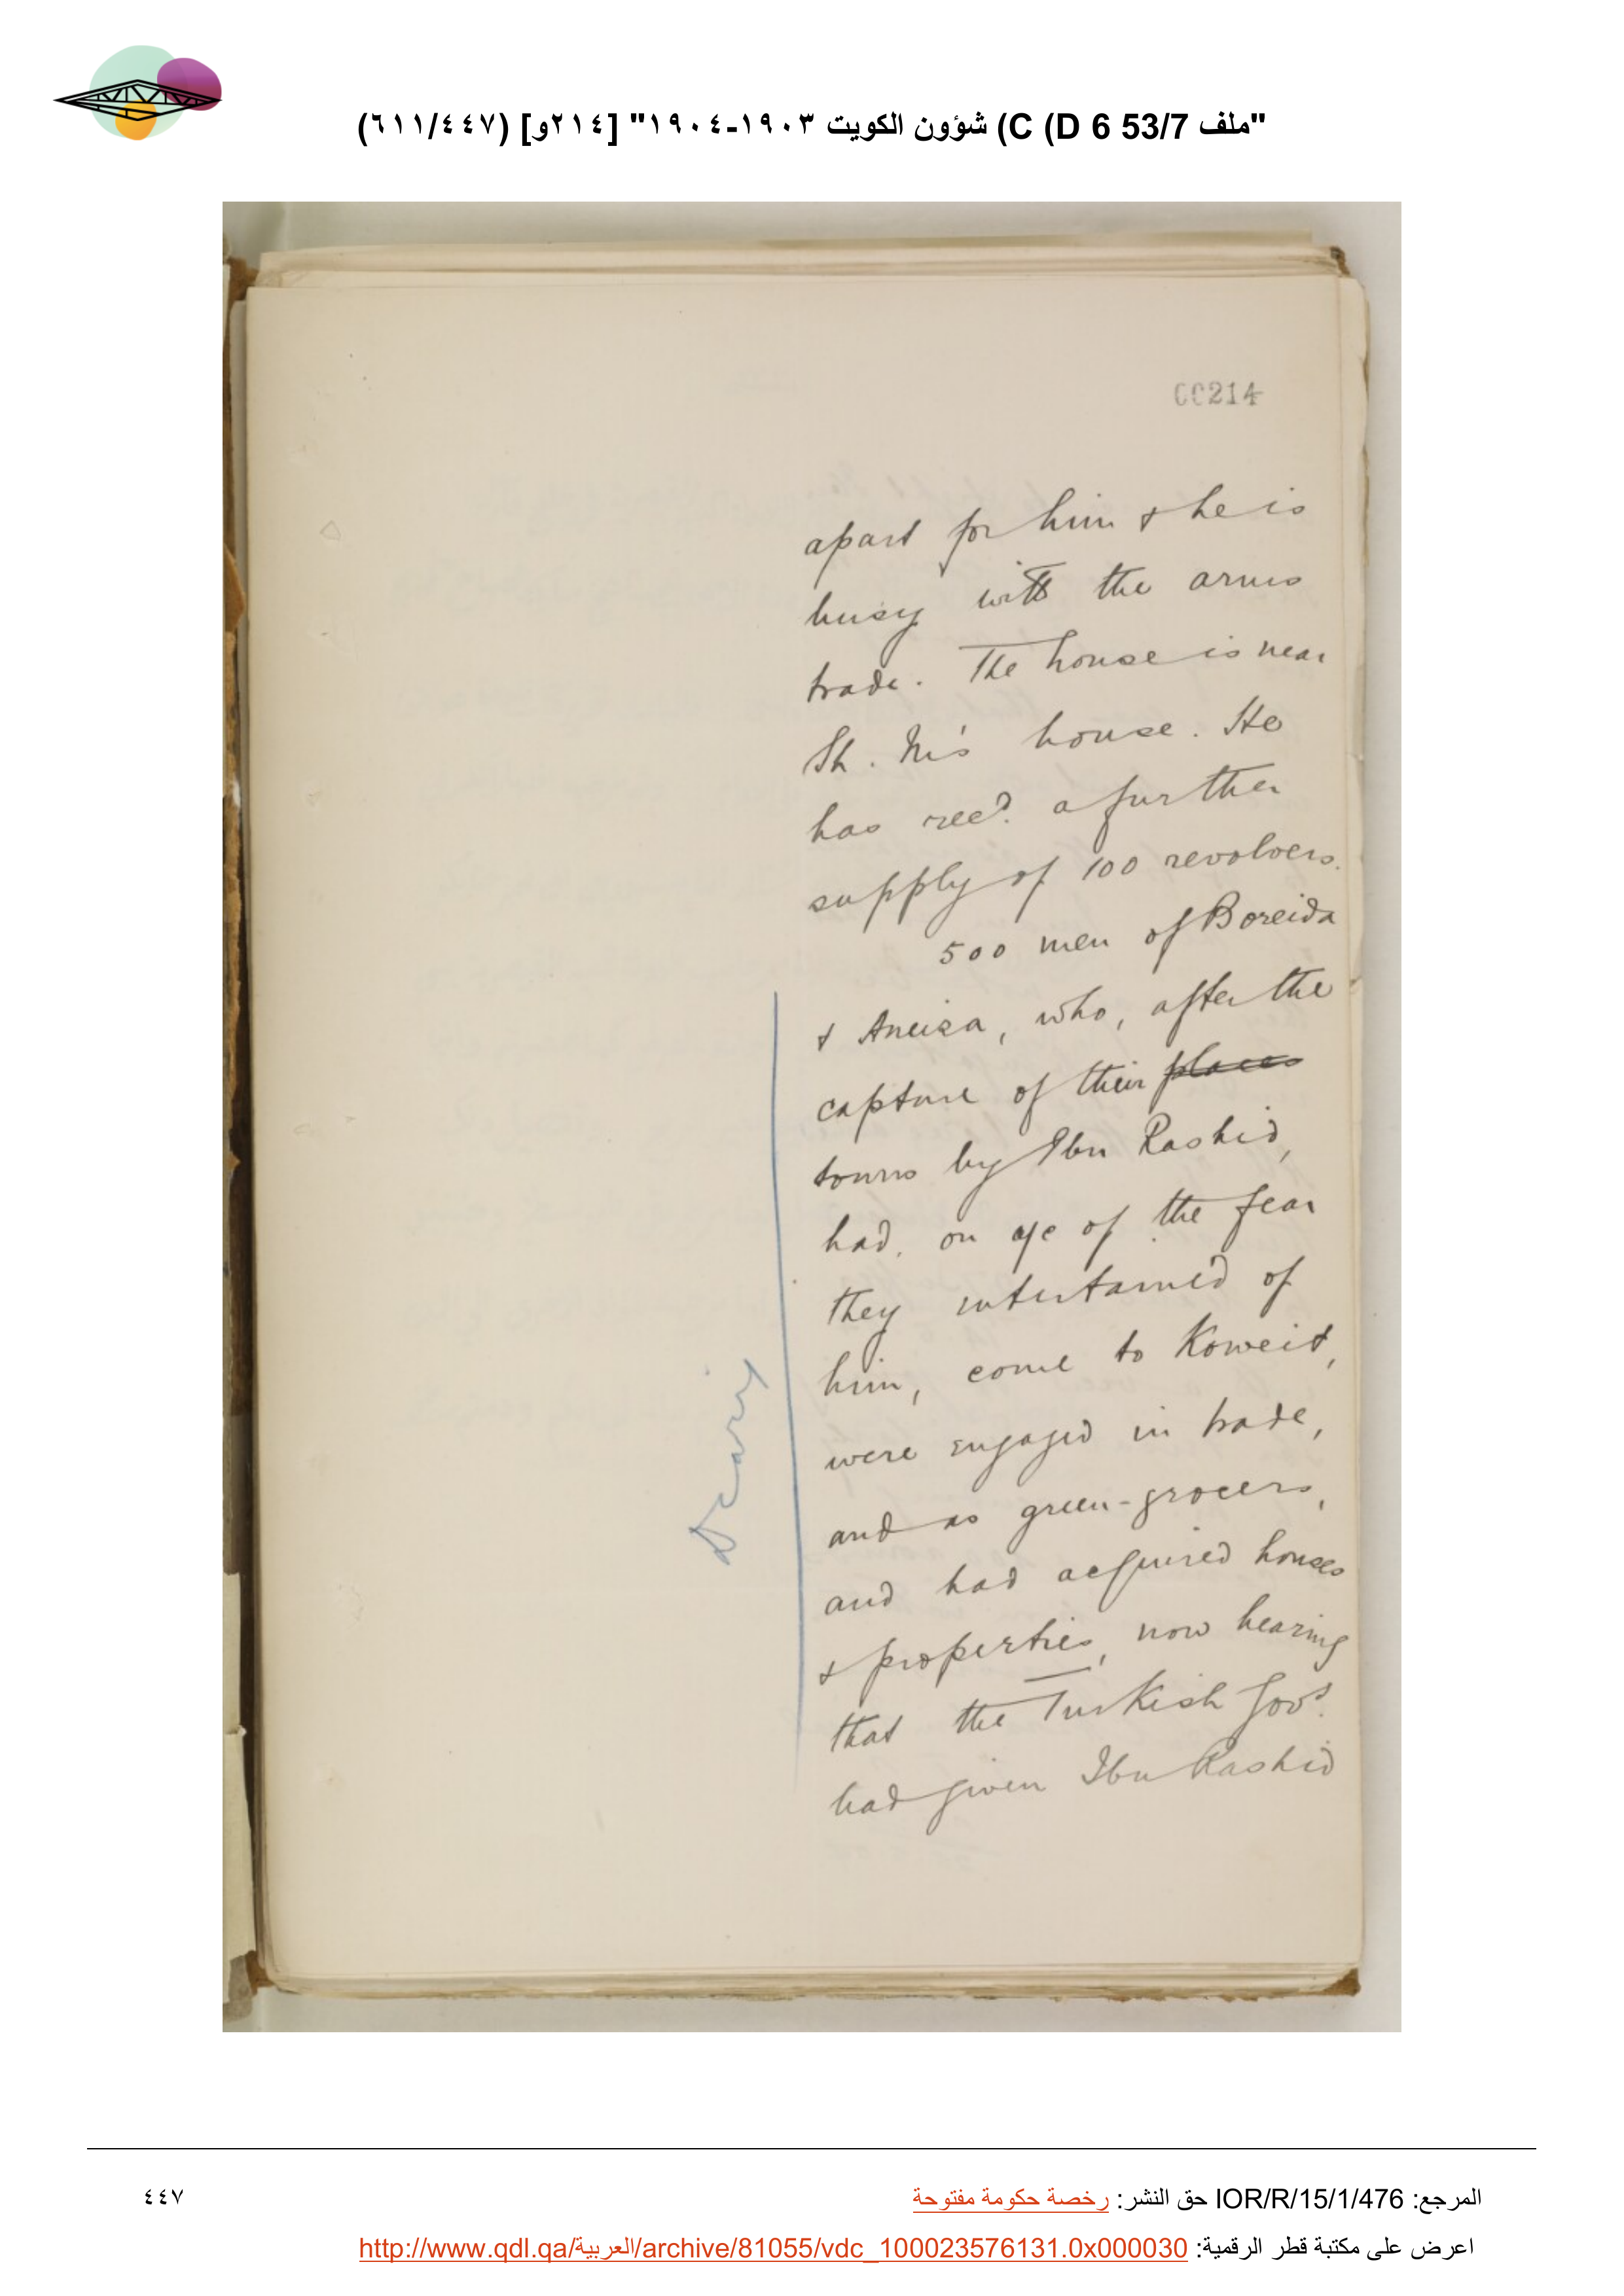 "ملف 53/7 C (D 6) شؤون الكويت ١٩٠٣-١٩٠٤" [٢١٤و] (٦١١/٤٤٧)
00214
apart for him & he is
busy with the arms
trade. The house is near
Sh. M's house. He
has recd. a further
supply of 100 revolvers.
500 men of Boreida
& Aneiza, who, after the
capture of their places
towns by Ibn Rashid,
had, on a/c of the fear
they entertained of
him, come to Koweit,
were engaged in trade,
and as green-grocers,
and had acquired houses
& properties, now hearing
that the Turkish Govt.
had given Ibn Rashid
Diary
المرجع: IOR/R/15/1/476 حق النشر: رخصة حكومة مفتوحة
اعرض على مكتبة قطر الرقمية: http://www.qdl.qa/العربية/archive/81055/vdc_100023576131.0x000030
٤٤٧